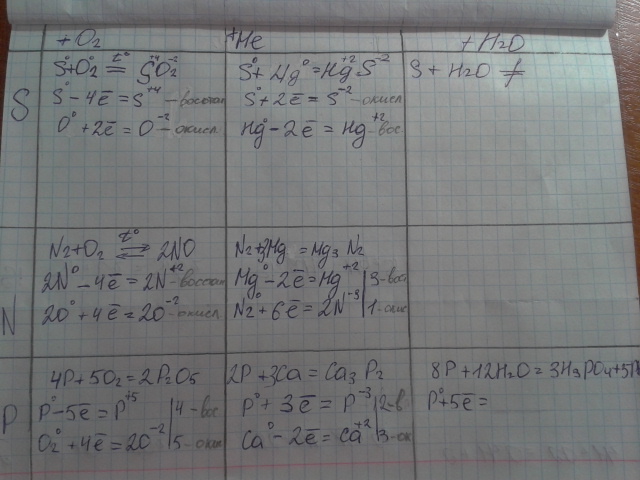 + O₂
+Me
+ H₂O
S
S⁰+O₂⁰ =t°= S⁺⁴O₂⁻²
S⁰ - 4ē = S⁺⁴ - восстан
O⁰ + 2ē = O⁻² - окисл
S⁰ + Hg⁰ = Hg⁺² S⁻²
S⁰ + 2ē = S⁻² - окисл
Hg⁰ - 2ē = Hg⁺² - вос
S + H₂O ≠
N
N₂+O₂ ⇄t° 2NO
2N⁰ - 4ē = 2N⁺² - восстан
2O⁰ + 4ē = 2O⁻² - окисл
N₂+3Mg = Mg₃ N₂
Mg⁰ - 2ē = Mg⁺² | 3 - восс
N₂⁰ + 6ē = 2N⁻³ | 1 - окис
P
4P + 5O₂ = 2P₂O₅
P⁰ - 5ē = P⁺⁵ | 4 - вос
O₂⁰ + 4ē = 2O⁻² | 5 - окис
2P + 3Ca = Ca₃ P₂
P⁰ + 3ē = P⁻³ | 2 - в
Ca⁰ - 2ē = Ca⁺² | 3 - ок
8P + 12H₂O = 3H₃PO₄ + 5P
P⁰ + 5ē =